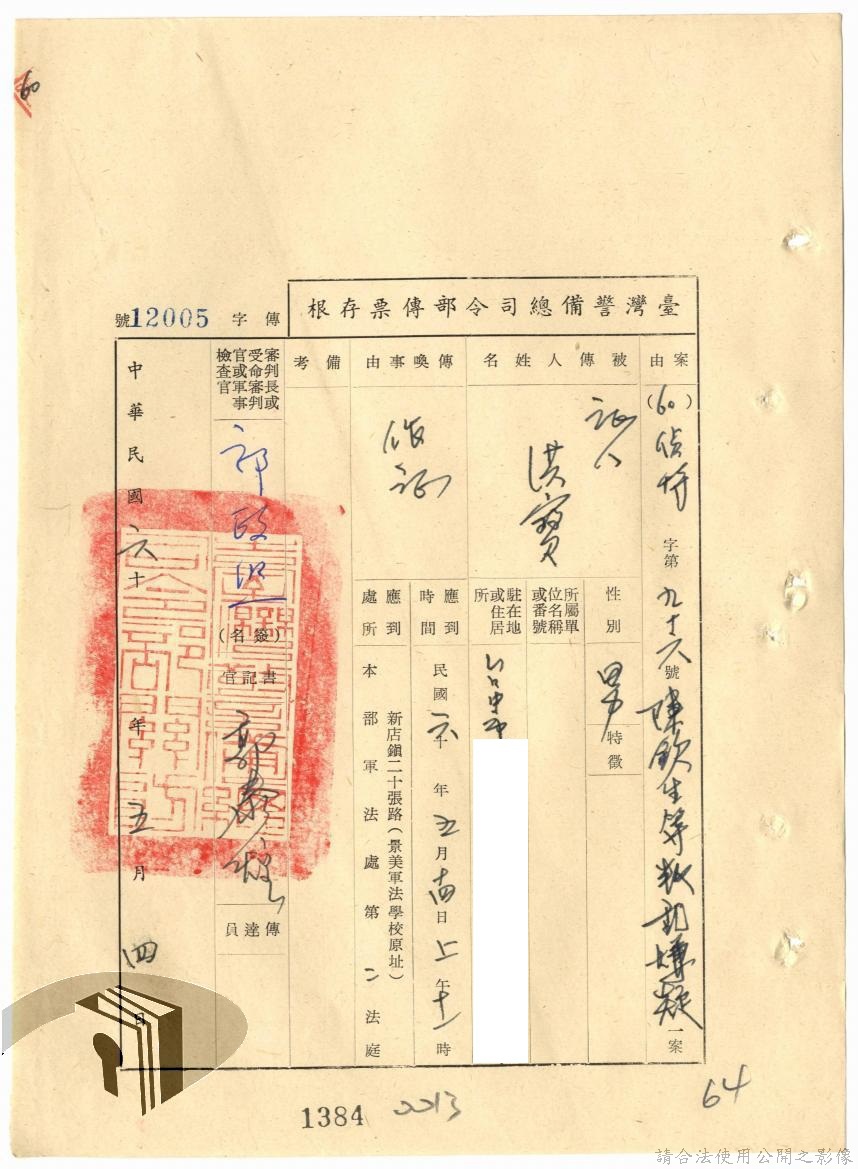 60
臺灣警備總司令部傳票存根
傳字
12005號
案由
(60)偵特字第九十六號陳欽生等叛亂嫌疑一案
被傳人姓名
証人
洪寶
性別
男
特徵
所屬單位名稱或番號
駐在地或住居所
台中市
傳喚事由
作証
應到時間
民國六十年五月十四日上午十一時
應到處所
新店鎮二十張路(景美軍法學校原址)
本部軍法處第二法庭
備考
審判長或受命審判官或軍事檢查官
郭政熙
(簽名)
書記官
傳達員
中華民國六十年五月四日
1384
2213
64
請合法使用公開之影像